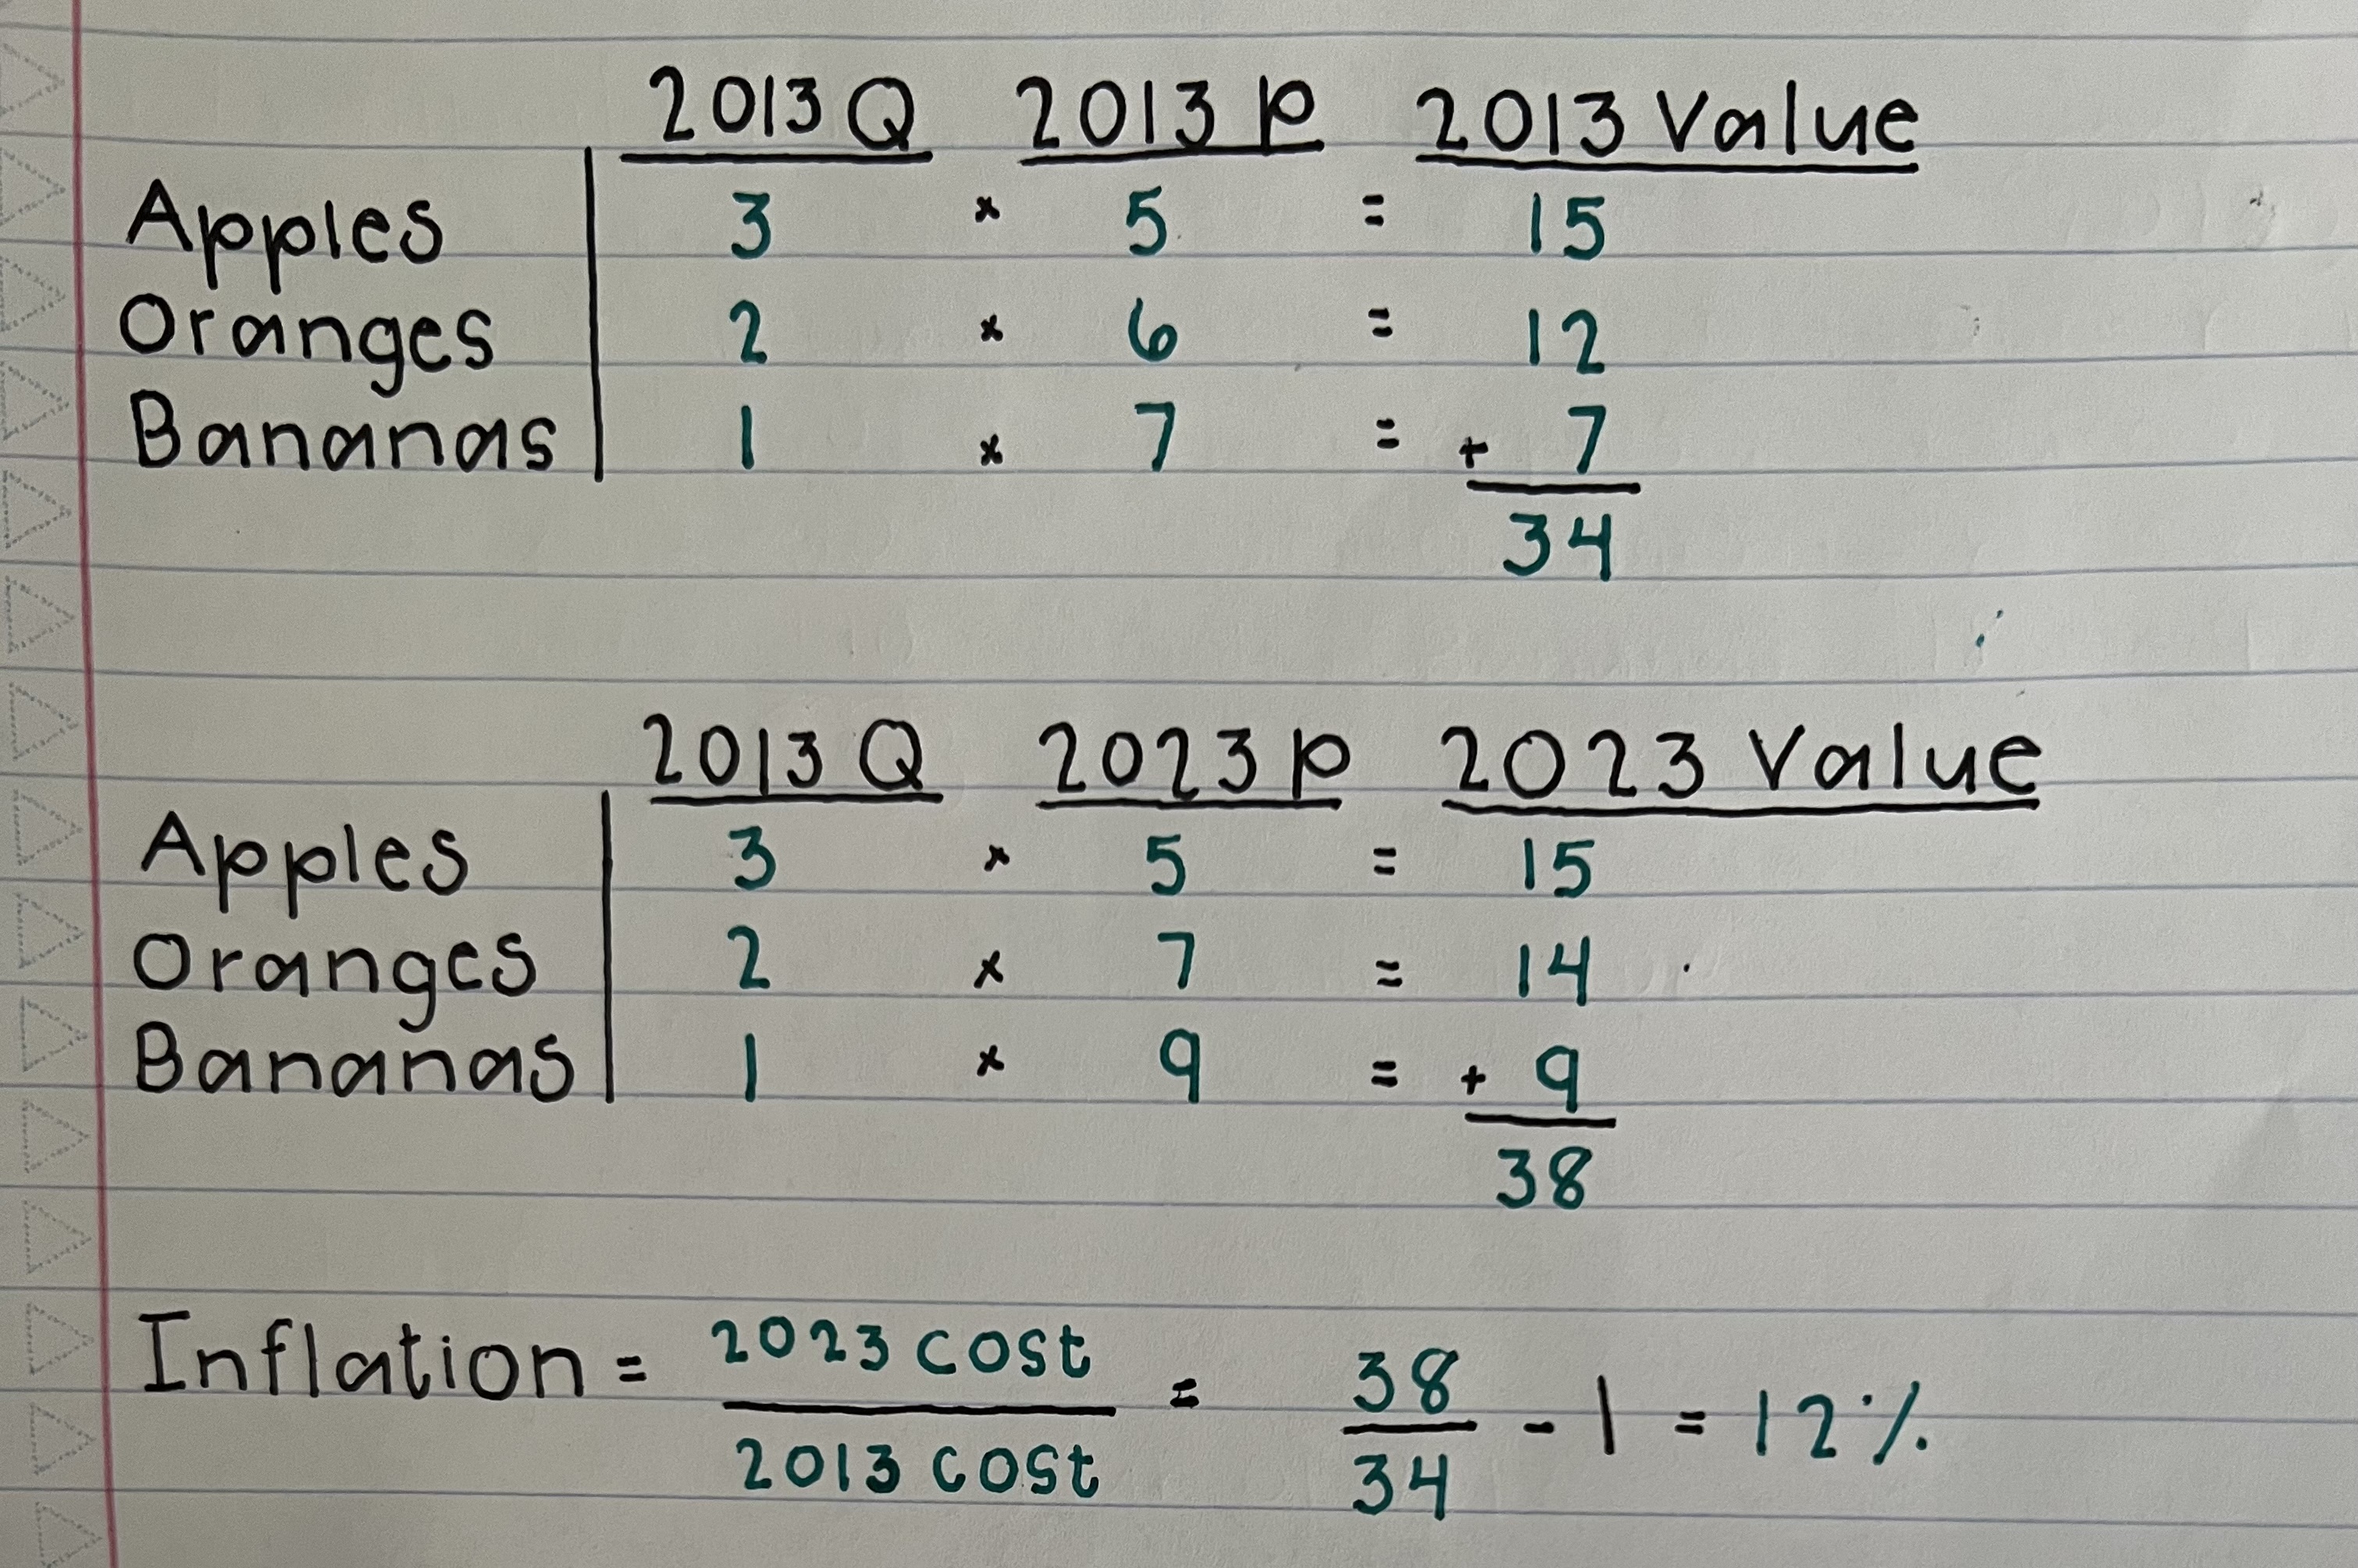 2013 Q 2013 P 2013 Value
Apples 3 × 5 = 15
Oranges 2 × 6 = 12
Bananas 1 × 7 = + 7
34
2013 Q 2023 P 2023 Value
Apples 3 × 5 = 15
Oranges 2 × 7 = 14
Bananas 1 × 9 = + 9
38
Inflation = 2023 cost / 2013 cost = 38 / 34 - 1 = 12%